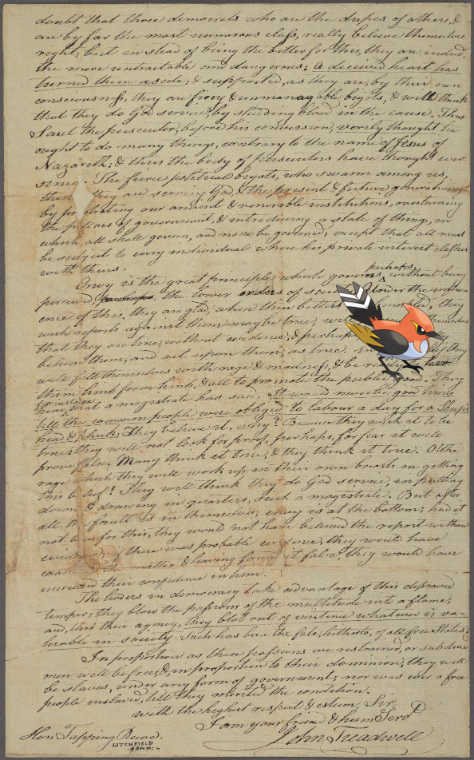 doubt that those democrats who are the dupes of others, &
are by far the most numerous class, really believe themselves
right; but instead of being the better for this, they are indeed
the more untractable and dangerous; a deceived heart has
turned them aside; & supported, as they are, by their own
consciousness, they are fiery & unmanagable bigots, & will think
that they do God service, by shedding blood in the cause. Thus
Saul the persecutor, before his conversion, verily thought he
ought to do many things, contrary to the name of Jesus of
Nazareth; & thus the body of persecutors have thought ever
since. The fierce political bigots, who swarm among us,
think they are serving God, & the present & future generations
by prostrating our ancient & venerable institutions, overturning
the pillars of government, & introducing a state of things, in
which all shall govern, and none be governed, except that all must
be subject to every individual where his private interest clashes
with theirs.
Envy is the great principle which governs, perhaps, without being
perceived, the lower orders of society. Under the influ
ence of this, they are glad, when their betters
with reports against them may be true;
that they are true, without evidence, & perhaps
believe them, and act upon them, as true
will fill themselves with rage & madness, & be ready to tear
them limb from limb, & all to promote the public good. They
hear, that a magistrate has said, it would never be good times
till the common people were obliged to labour a day for a Sheeps
head & pluck; They believe it, why? Because they wish it to be
true; they will not look for proof, perhaps, for fear it will
prove false. Many think it true, & they think it true. O the
rage which they will work up in their own breasts in getting
this belief! They will think they do God service, in pulling
down & drawing in quarters, such a magistrate. But after
all the fault is in themselves; envy is at the bottom; had it
not been for this, they would not have believed the report without
evidence; if there was probable evidence, they would have
examined the matter & having found it false, they would have
increased their confidence in him.
The leaders in democracy take advantage of this depraved
temper; they blow the passions of the multitude into a flame;
and, thro their agency, they blow out of existence whatever is va-
luable in society. Such has been the fate, hitherto, of all free States;
In proportion as these passions are restrained, or subdued
men will be free; & in proportion to their dominion, they will
be slaves, under any form of government; nor was ever a free
people enslaved, till they merited the condition.
With the highest respect & esteem, Sir,
I am your friend & hum Servt
John Treadwell
Hon. Tapping Reeve.
LITCHFIELD
CONN.